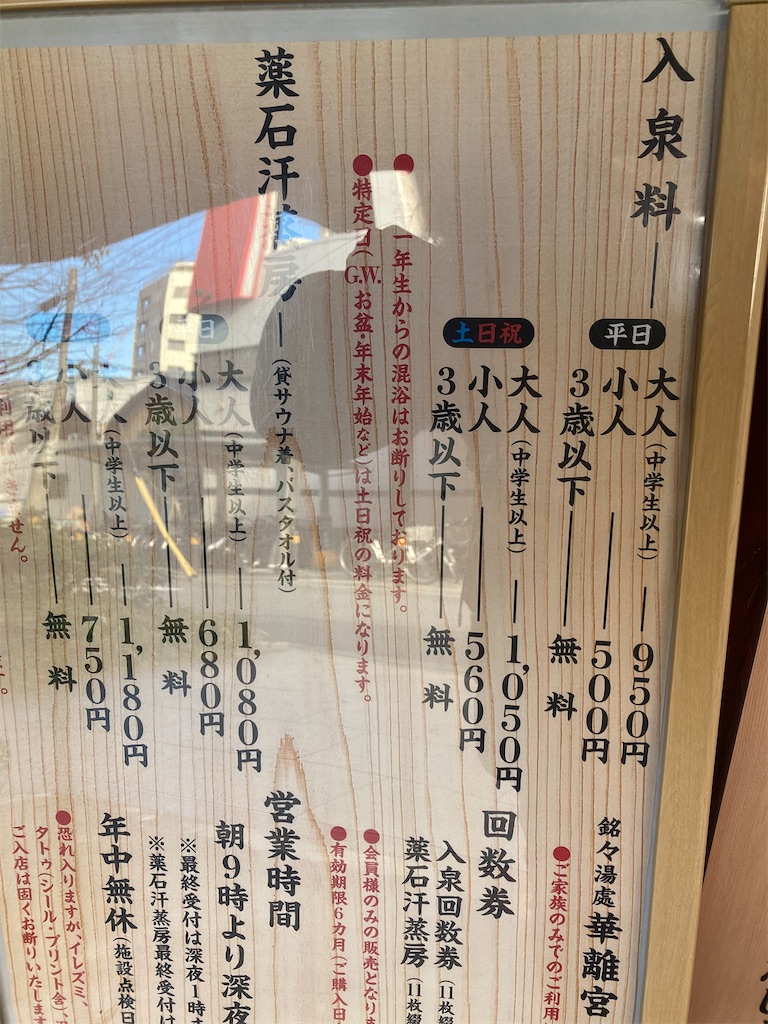 入泉料
平日
大人(中学生以上) 950円
小人 500円
3歳以下 無料
土日祝
大人(中学生以上) 1,050円
小人 560円
3歳以下 無料
●一年生からの混浴はお断りしております。
●特定日(G.W.お盆・年末年始など)は土日祝の料金になります。
薬石汗蒸房(貸サウナ着、バスタオル付)
日
大人(中学生以上) 1,080円
小人 680円
3歳以下 無料
人(中学生以上) 1,180円
小人 750円
3歳以下 無料
せん。
ます。
銘々湯處 華離宮
●ご家族のみでのご利用
回数券
入泉回数券(11枚綴
薬石汗蒸房(11枚綴
●会員様のみの販売となりま
●有効期限6カ月(ご購入日
営業時間
朝9時より深夜
※最終受付は深夜1時ま
※薬石汗蒸房最終受付は
年中無休(施設点検日
●恐れ入りますが、イレズミ、
タトゥ(シール・プリント含)、
ご入店は固くお断りいたします